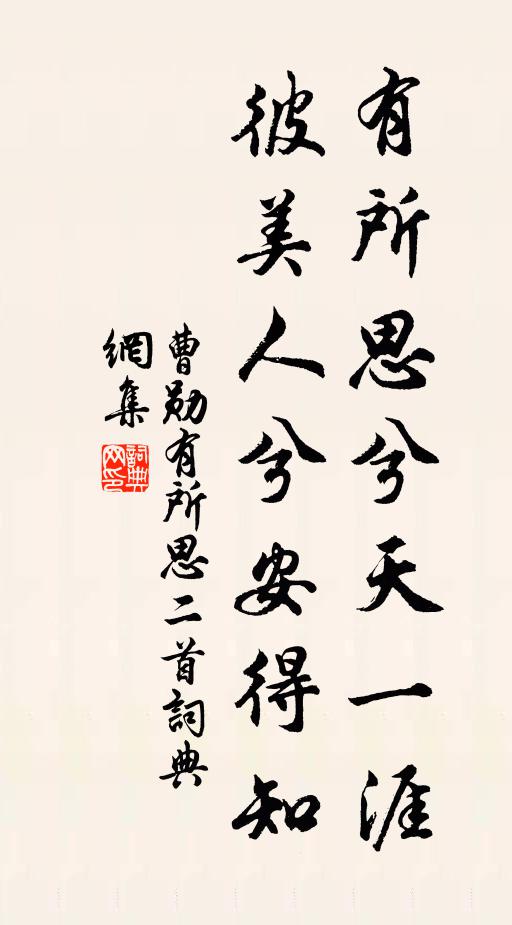 有所思兮天一涯
彼美人兮安得知
曹勛有所思二首詞典
網集
詞典
网印